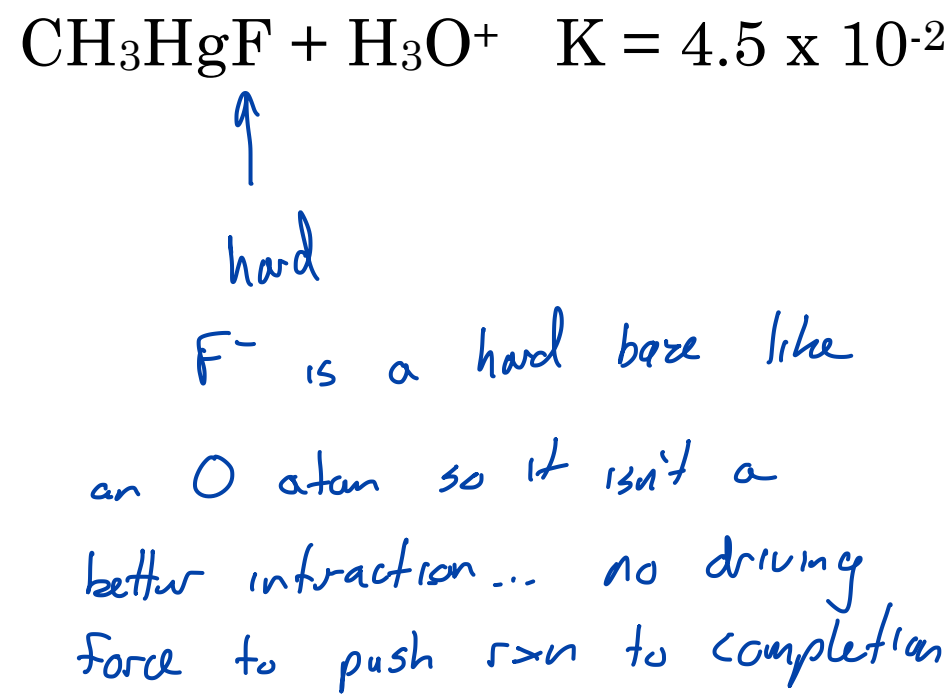 CH₃HgF + H₃O⁺ K = 4.5 x 10⁻²
hard
F⁻ is a hard base like
an O atom so it isn't a
better interaction... no driving
force to push rxn to completion